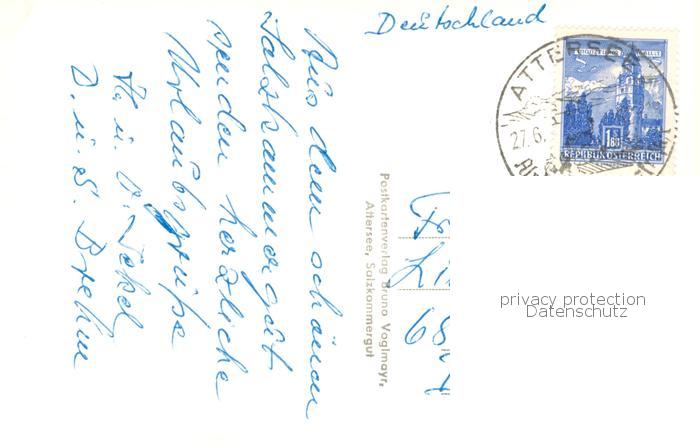 Deutschland
Aus dem schönen
Salzkammergut
senden herzliche
Urlaubsgrüße
H. u. P. Jekel
D. u. S. Brehm
Postkartenverlag Bruno Voglmayr,
Attersee, Salzkammergut
ATTERSEE
27.6.
1.80
REPUBLIK ÖSTERREICH
Fr
Li
68
privacy protection
Datenschutz